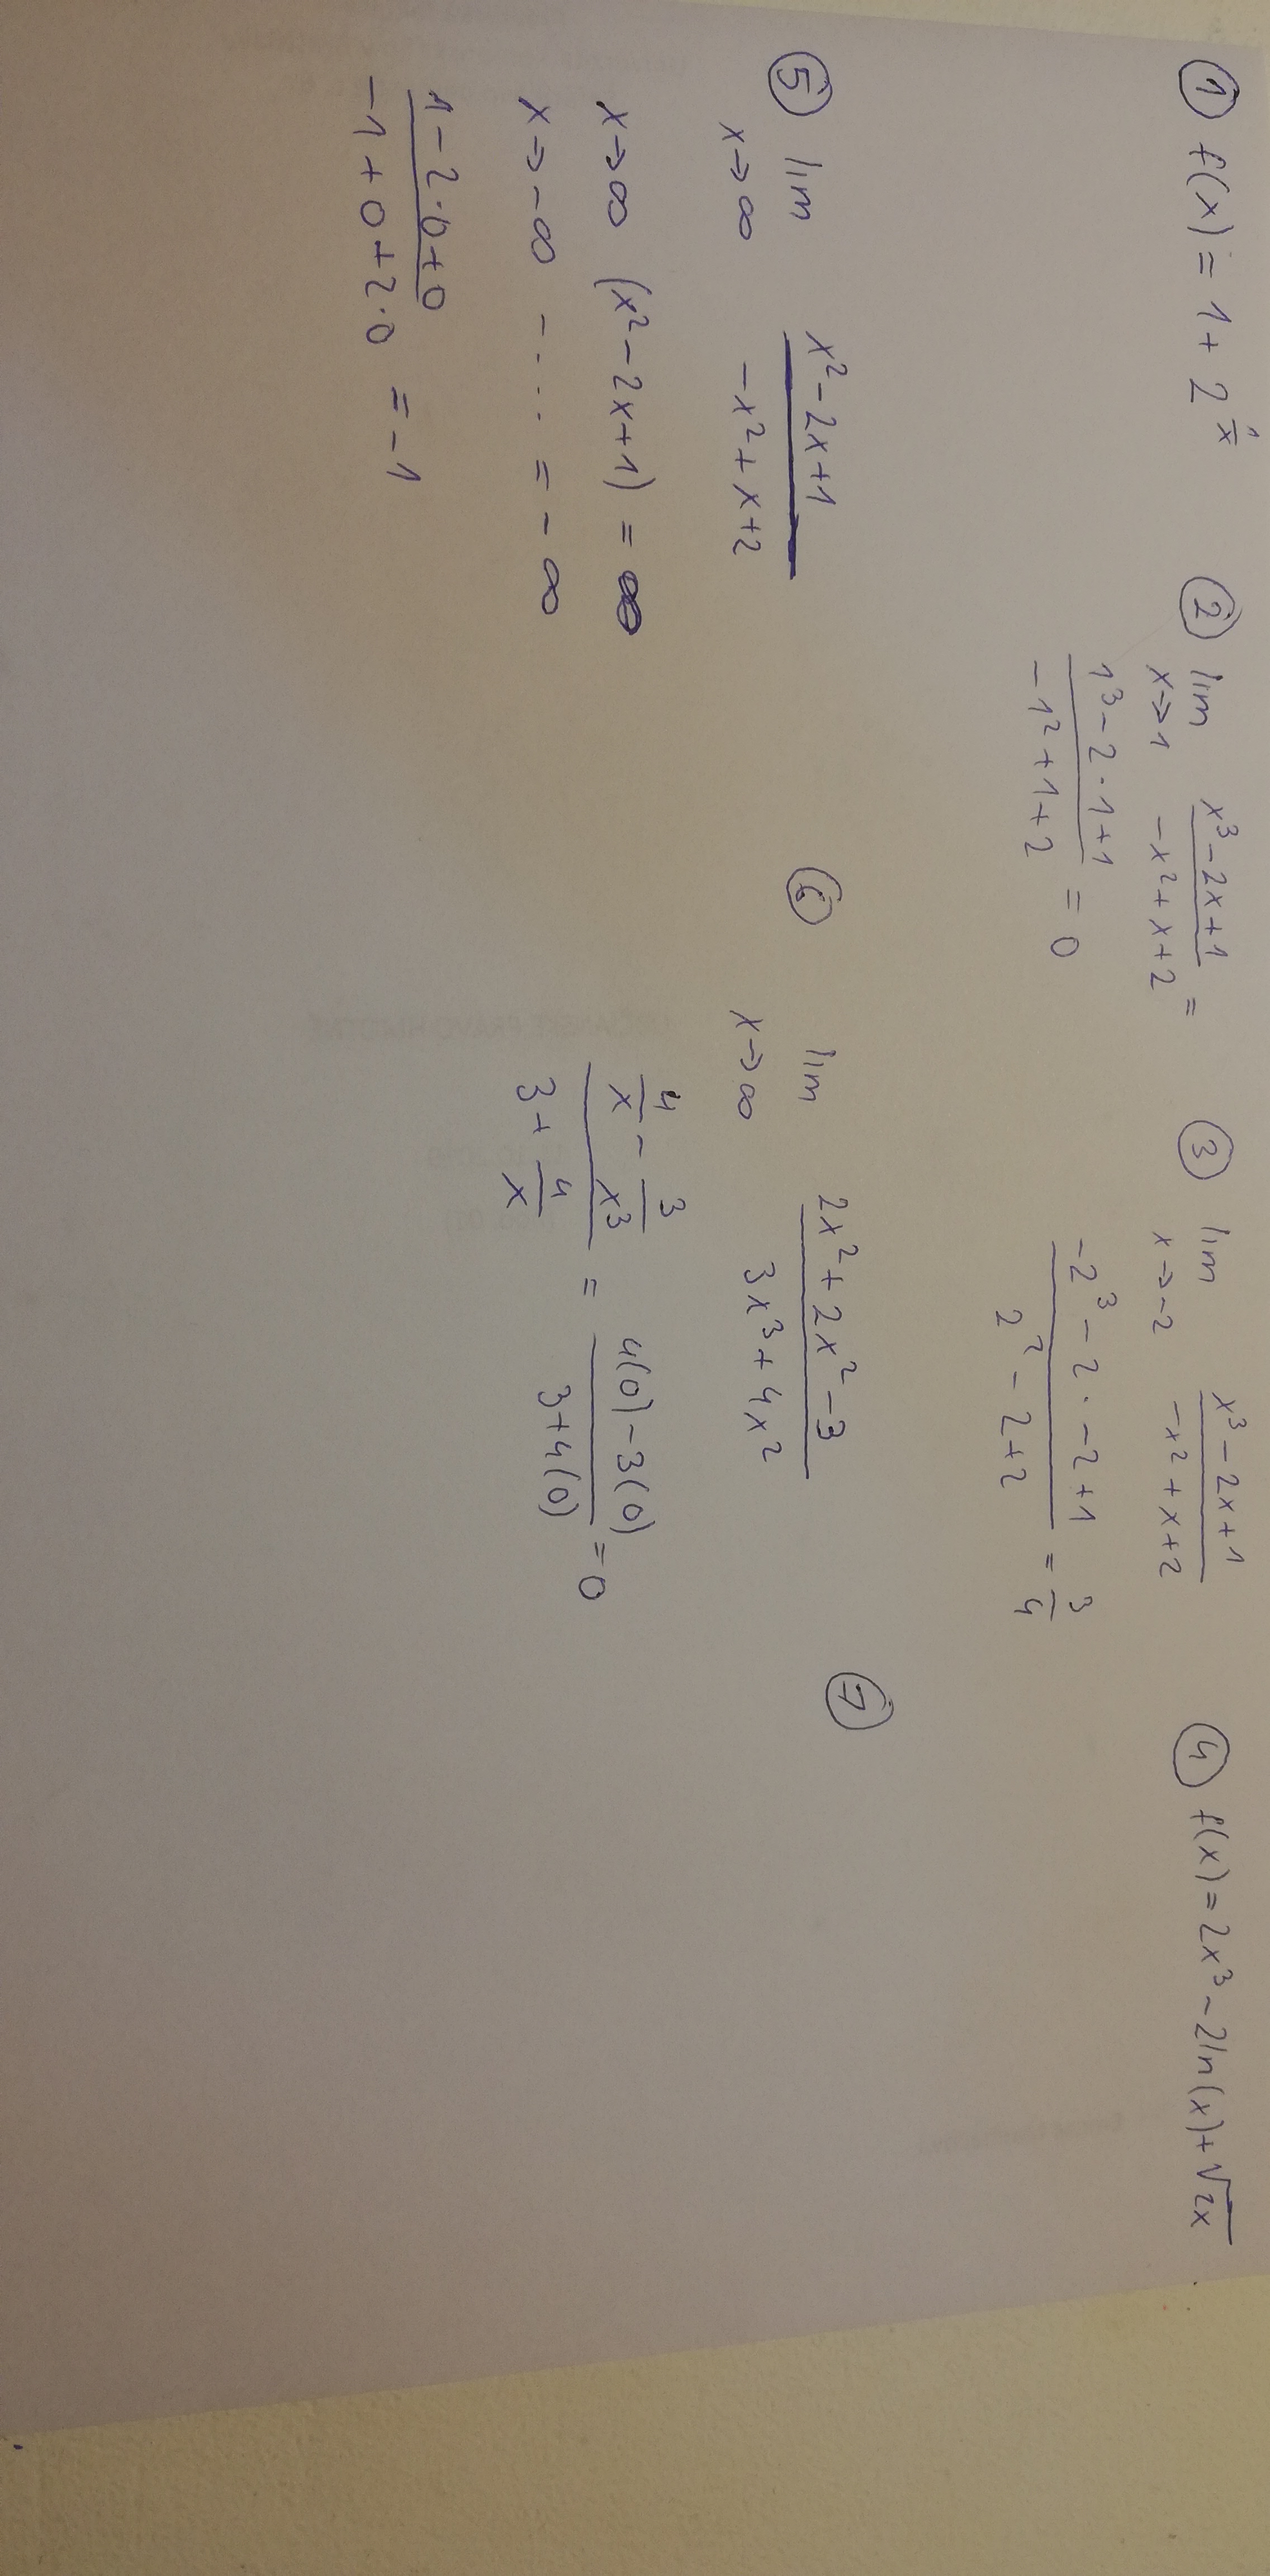 ① f(x) = 1 + 2^(1/x)
② lim x→1 (x³ - 2x + 1)/(-x² + x + 2) =
(1³ - 2·1 + 1)/(-1² + 1 + 2) = 0
③ lim x→-2 (x³ - 2x + 1)/(-x² + x + 2)
(-2³ - 2·-2 + 1)/(2² - 2 + 2) = 3/4
④ f(x) = 2x³ - 2ln(x) + √2x
⑤ lim x→∞ (x² - 2x + 1)/(-x² + x + 2)
x→∞ (x² - 2x + 1) = ∞
x→-∞ -... = -∞
(1 - 2·0 + 0)/(-1 + 0 + 2·0) = -1
⑥ lim x→∞ (2x² + 2x² - 3)/(3x³ + 4x²)
(4/x - 3/x³)/(3 + 4/x) = (4(0) - 3(0))/(3 + 4(0)) = 0
⑦